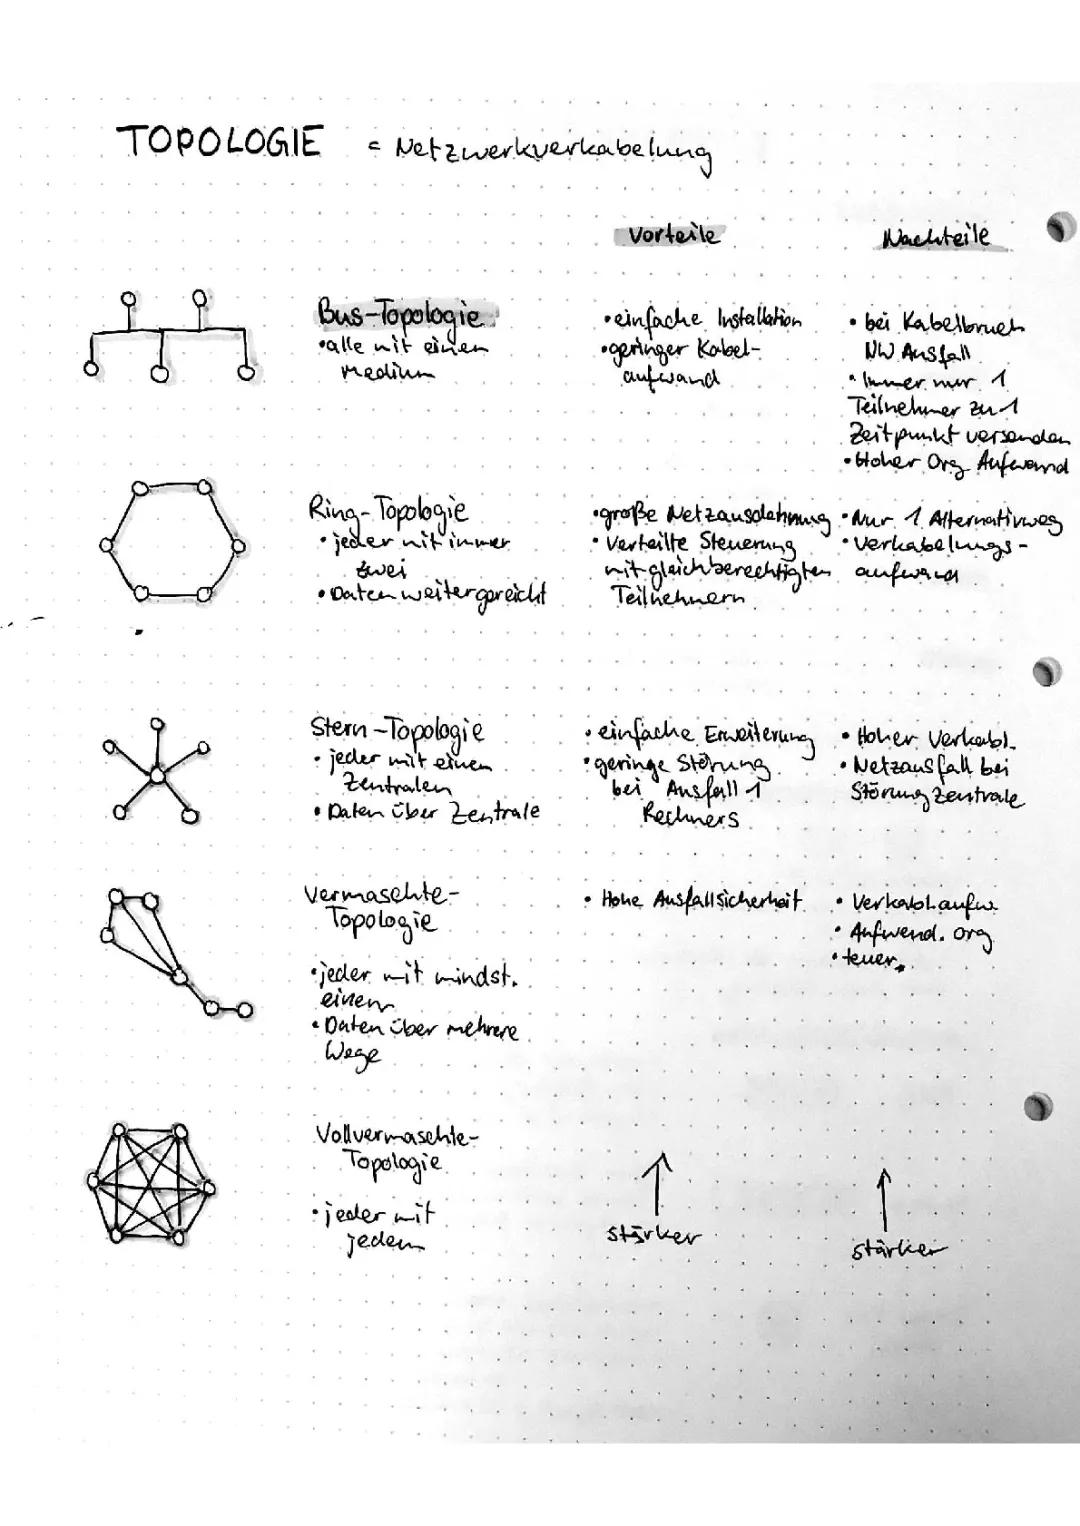 TOPOLOGIE = Netzwerkverkabelung
Vorteile
Nachteile
Bus-Topologie
• alle mit einem
Medium
• einfache Installation
• geringer Kabel-
aufwand
• bei Kabelbruch
NW Ausfall
• Immer nur 1
Teilnehmer zu 1
Zeitpunkt versenden
• Hoher Org Aufwand
Ring-Topologie
• jeder mit immer
zwei
• Daten weitergereicht
• große Netzausdehnung
• Verteilte Steuerung
mit gleichberechtigten
Teilnehmern
• Nur 1 Alternativweg
• Verkabelungs-
aufwand
Stern-Topologie
• jeder mit einem
Zentralen
• Daten über Zentrale
• einfache Erweiterung
• geringe Störung
bei Ausfall 1
Rechners
• Hoher Verkabl.
• Netzausfall bei
Störung Zentrale
Vermaschte-
Topologie
• jeder mit mindst.
einem
• Daten über mehrere
Wege
• Hohe Ausfallsicherheit
• Verkabl.aufw.
• Aufwend. Org
• teuer
Vollvermaschte-
Topologie
• jeder mit
jedem
↑
stärker
↑
stärker